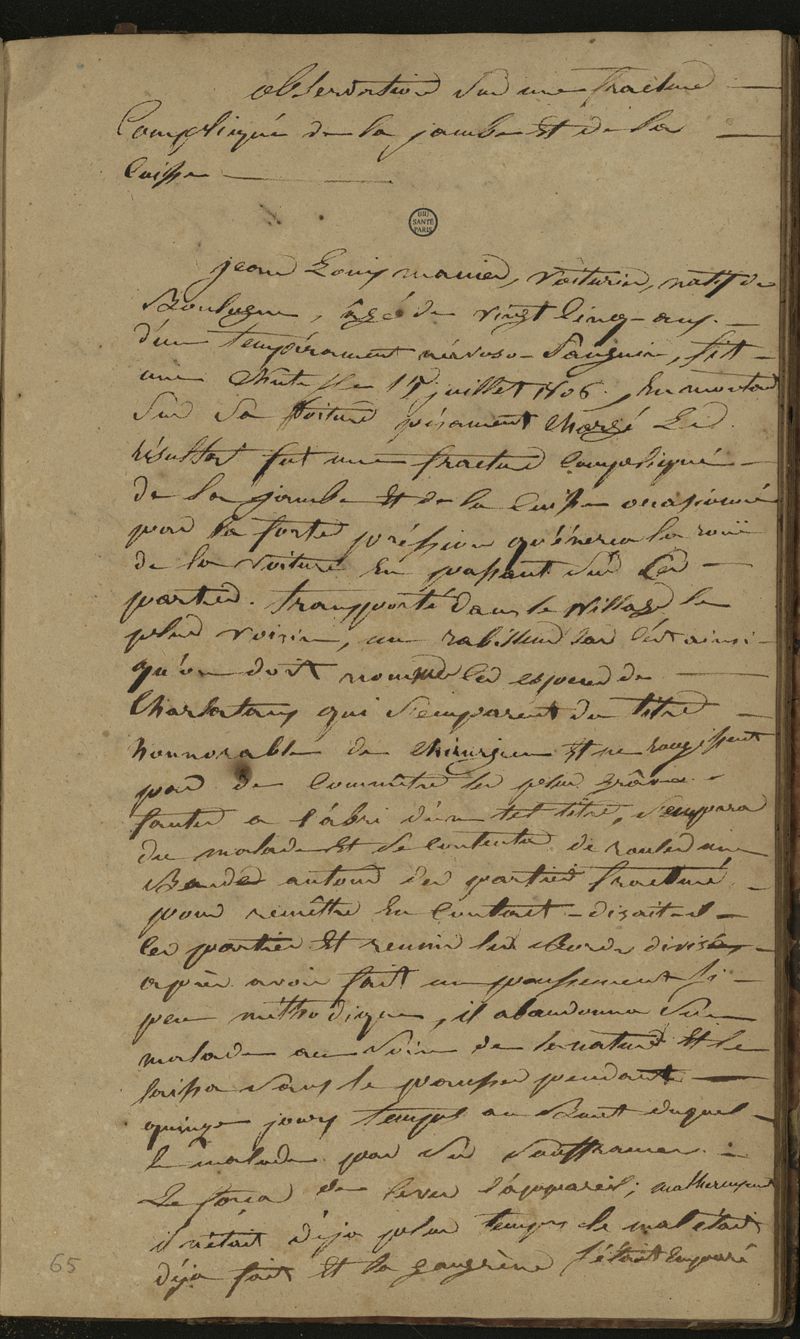 observation sur une fracture
Compliquée de la jambe Et de la
Cuisse
BIU
SANTÉ
PARIS
jean Louis manier, voiturier, natif de
Boulogne, âgé de vingt Cinq ans.
d'un tempérament nérvoso-Sanguin, fit
une Chute le 17 juillet 1806. En montant
Sur Sa voiture pésament Chargé Le
résultat fut une fracture Compliquée
de la jambe Et de la Cuisse occasionné
par la forte préssion qu'éxerca la rouë
de la voiture En passant Sur Ces
parties. transporté dans le village le
plus voisin, un rabilleur Car C'est ainsi
qu'on doit nommer Ces especes de
Charlatans qui S'emparent du titre
honnorable de Chirurgien Et ne rougissent
pas de Commêttre les plus grâves
fautes a l'abri d'un tel titre, S'empara
du malade Et Se Contenta de rouler une
Bande autour des parties fracturé,
pour remêttre En Contact - disait-il -
Ces parties Et reunir les Bords divisés
après avoir fait un panssement Si
peu méthodique, il abandonna Son
malade au Soin de la nature Et le
laissa Sans le pansser pendant
quinze jours temps au Bout duquel
le malade par Ses Souffrances
Le força de lever l'appareil; malheureusement
il n'était déja plus temps le mal était
déja fait Et la gangrène S'était Emparé
65